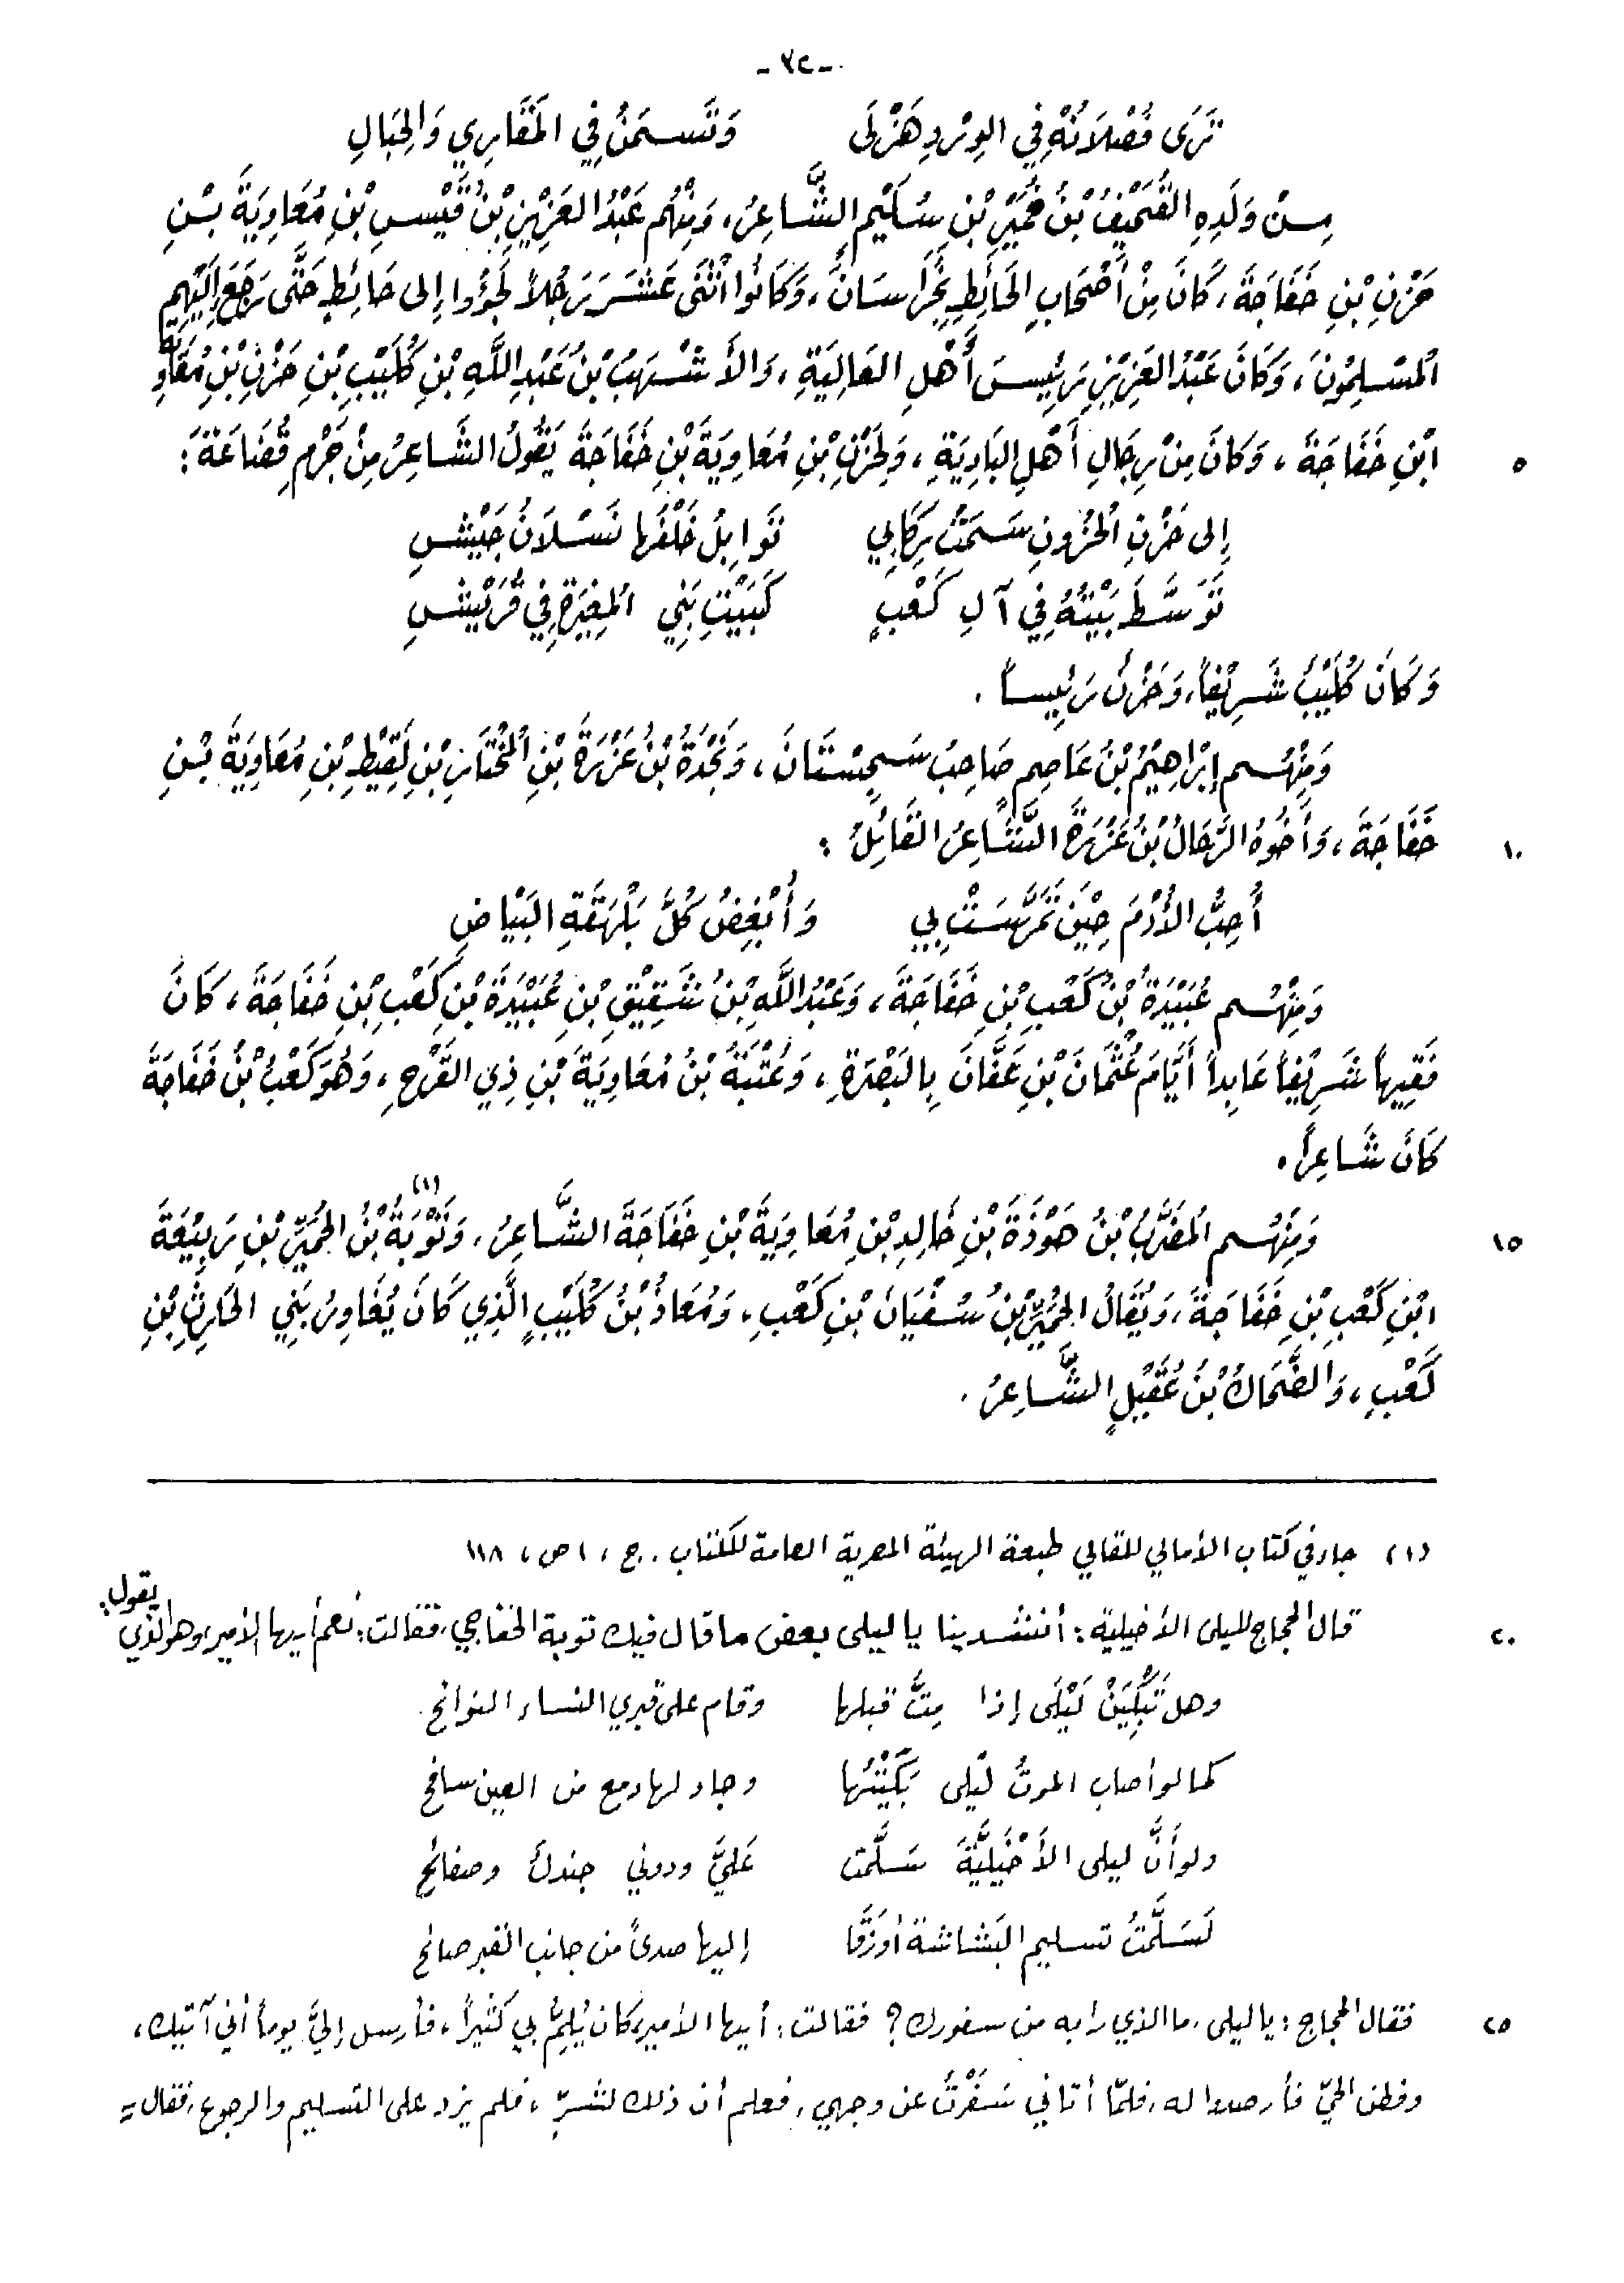 - ٧٢ -
تَرَى فُصْلَانَهُ فِي الوِرْدِ هَزْلَى وَتَسمَنُ فِي المَقَارِي وَالحِبَالِ
مِنْ وَلَدِهِ القُحَيْفُ بْنُ خُمَيِّرِ بْنِ سُلَيْمٍ الشَّاعِرُ، وَمِنْهُم عَبْدُ العَزِيْزِ بْنُ قَيْسِ بْنِ مُعَاوِيَةَ بْنِ
حَزْنِ بْنِ خَفَاجَةَ، كَانَ مِنْ أَصْحَابِ الحَائِطِ بِخُرَاسَانَ، وَكَانُوا اثْنَى عَشَرَ رَجُلاً لَجَؤُوا إِلى حَائِطٍ حَتَّى رَجَعَ إِلَيْهِم
المُسْلِمُونَ، وَكَانَ عَبْدُ العَزِيْزِ رَئِيسَ أَهْلِ العَالِيَةِ، وَالأَشْهَبُ بْنُ عَبْدِ اللَّهِ بْنِ كُلَيْبِ بْنِ حَزْنِ بْنِ مُعَاوِيَة
٥ ابْنِ خَفَاجَةَ، وَكَانَ مِنْ رِجَالِ أَهْلِ البَادِيَةِ، وَلِحَزْنِ بْنِ مُعَاوِيَةَ بْنِ خَفَاجَةَ يَقُولُ الشَّاعِرُ مِنْ جَرْمِ قُضَاعَةَ:
إِلى حَزْنِ الحُزُونِ سَمَتْ رِكَابِي تَوَابِلُ خَلْفَهَا عَسَلَانُ جَيْشِ
تَوَسَّطَ بَيْتُهُ فِي آلِ كَعْبٍ كَبَيْتِ بَنِي المُغِيرَةِ فِي قُرَيْشِ
وَكَانَ كُلَيْبُ شَرِيْفاً، وَحَزْنُ رَئِيساً.
وَمِنْهُم إِبْرَاهِيْمُ بْنُ عَاصِمٍ صَاحِبُ سَجِسْتَانَ، وَنَجْدَةُ بْنُ عَزْرَةَ بْنِ المُخْتَارِ بْنِ لَقِيْطِ بْنِ مُعَاوِيَةَ بْنِ
١٠ خَفَاجَةَ، وَأَخُوهُ الرَّحَالُ بْنُ عَزْرَةَ الشَّاعِرُ القَائِلُ:
أُحِبُّ الأُدْمَ حِيْنَ تَمَرَّسَتْ بِي وَأُبْغِضُ كُلَّ بَلْهَقَةِ البَيَاضِ
وَمِنْهُم عُبَيْدَةُ بْنُ كَعْبِ بْنِ خَفَاجَةَ، وَعَبْدُ اللَّهِ بْنُ شَقِيْقِ بْنِ عُبَيْدَةَ بْنِ كَعْبِ بْنِ خَفَاجَةَ، كَانَ
فَقِيهاً شَرِيْفاً عَابِداً أَيَّامَ عُثْمَانَ بْنِ عَفَّانَ بِالبَصْرَةِ، وَعُتْبَةُ بْنُ مُعَاوِيَةَ بْنِ ذِي القَرْحِ، وَهُوَ كَعْبُ بْنُ خَفَاجَةَ
كَانَ شَاعِراً.
١٥ وَمِنْهُم المُضَرَّبُ بْنُ هَوْذَةَ بْنِ خَالِدِ بْنِ مُعَاوِيَةَ بْنِ خَفَاجَةَ الشَّاعِرُ، وَتَوْبَةُ (١) بْنُ الحُمَيِّرِ بْنِ رَبِيْعَةَ
ابْنِ كَعْبِ بْنِ خَفَاجَةَ، وَيُقَالُ الحُمَيِّرُ بْنُ سُفْيَانَ بْنِ كَعْبٍ، وَمُعَاذُ بْنُ كُلَيْبٍ الَّذِي كَانَ يُغَاوِرُ بَنِي الحَارِثِ بْنِ
كَعْبٍ، وَالضَّحَاكُ بْنُ عُقَيْلٍ الشَّاعِرُ.
(١) جاء في كتاب الأمالي للقالي طبعة الهيئة المصرية العامة للكتاب. ج، ١ ص، ١١٨
٢٠ قال الحجاج لليلى الأخيلية: أنشدينا يا ليلى بعض ما قال فيك توبة الخفاجي، فقالت: نعم أيها الأمير، وهو الذي يقول:
وهل تَبْكِيَنْ لَيْلَى إذا مِتُّ قبلها وقام على قبري النساء النوائح
كما لو أصاب الموتُ لَيْلى بَكَيْتُها وجاد لها دمع من العين سافح
ولو أَنَّ ليلى الأَخْيَلِيَّةَ سَلَّمت عَلَيَّ ودوني جندلٌ وصفائح
لَسَلَّمْتُ تسليم البَشاشة أو زَقَا إليها صدىً من جانب القبر صائح
٢٥ فقال الحجاج: يا ليلى، ما الذي رابه من سفورك؟ فقالت: أيها الأمير، كان يُلِمُّ بي كثيراً، فأرسل إليَّ يوماً أني آتيك،
وفطن الحيّ فأرصدوا له، فلمّا أتاني سَفَرْتُ عن وجهي، فعلم أن ذلك لشرٍّ، فلم يزد على التسليم والرجوع، فقال =